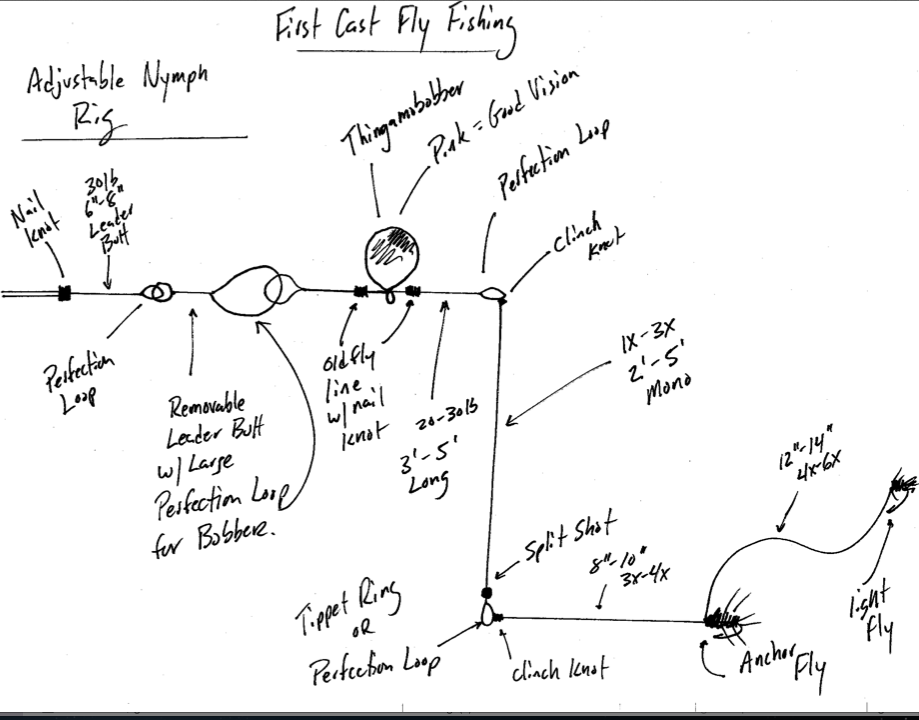 First Cast Fly Fishing
Adjustable Nymph
Rig
Thingamabobber
Pink = Good Vision
Perfection Loop
Clinch
Knot
Nail
Knot
30lb
6"-8"
Leader
Butt
Perfection
Loop
Removable
Leader Butt
w/ Large
Perfection Loop
for Bobber.
old fly
line
w/ nail
knot
20-30lb
3'-5'
Long
1X-3X
2'-5'
Mono
12"-14"
4X-6X
Split Shot
8"-10"
3X-4X
Tippet Ring
OR
Perfection Loop
Clinch Knot
Anchor
Fly
light
Fly